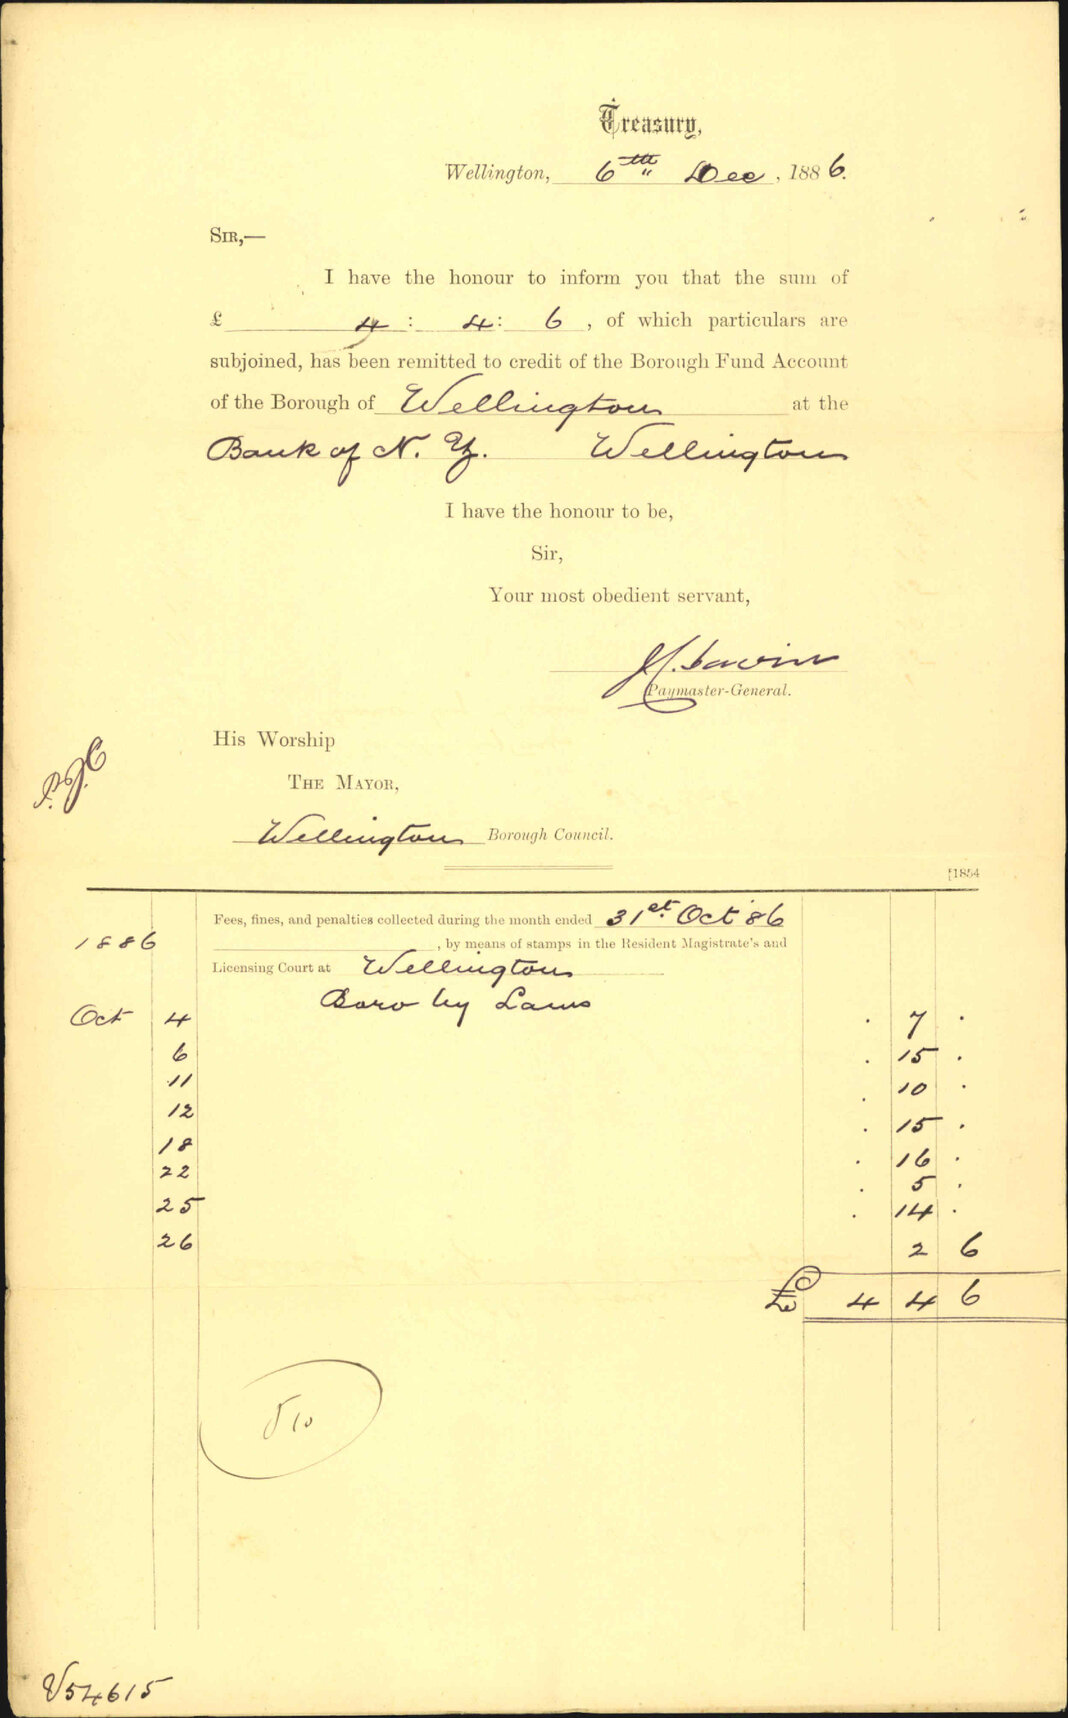 Treasury,
Wellington, 6th Dec, 1886.
SIR,—
I have the honour to inform you that the sum of
£ 4 : 4 : 6 , of which particulars are
subjoined, has been remitted to credit of the Borough Fund Account
of the Borough of Wellington at the
Bank of N. Z. Wellington
I have the honour to be,
Sir,
Your most obedient servant,
Paymaster-General.
His Worship
THE MAYOR,
Wellington Borough Council.
[1854
Fees, fines, and penalties collected during the month ended 31st Oct '86
1886 , by means of stamps in the Resident Magistrate's and
Licensing Court at Wellington
Boro by Laws
Oct 4 . 7 .
6 . 15 .
11 . 10 .
12 . 15 .
18 . 16 .
22 . 5 .
25 . 14 .
26 2 6
£ 4 4 6
V54615